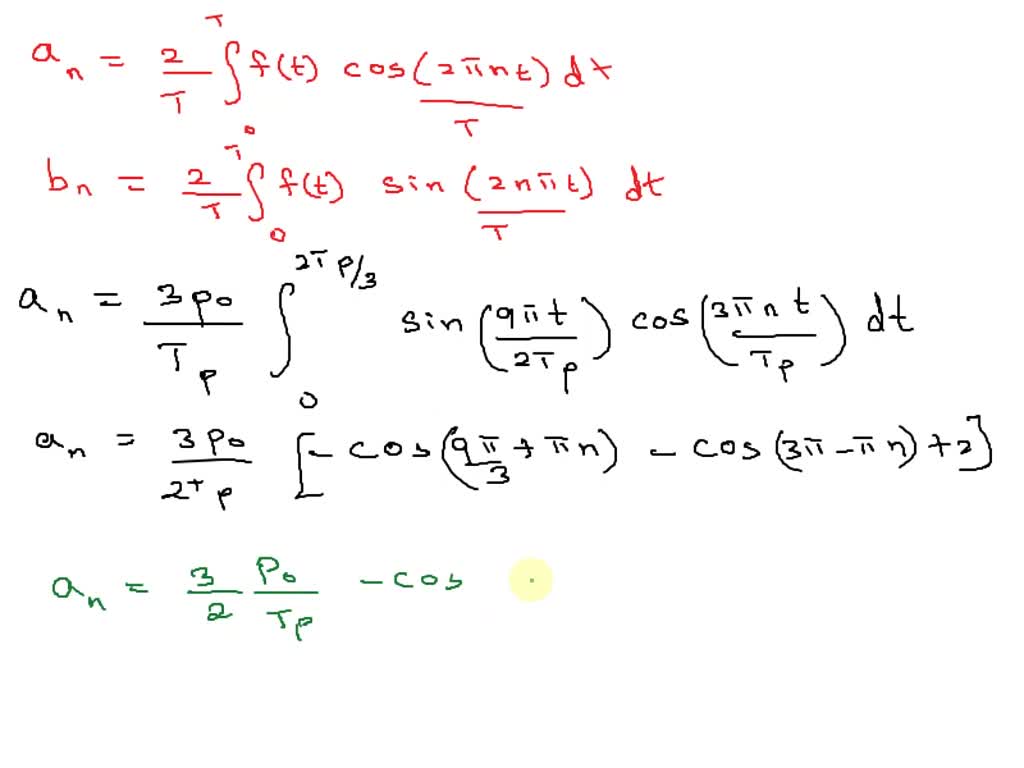 a_n = 2/T ∫_0^T f(t) cos(2πnt)/T dt
b_n = 2/T ∫_0^T f(t) sin(2nπt)/T dt
a_n = 3p_0/T_p ∫_0^{2T_p/3} sin(9πt/2T_p) cos(3πnt/T_p) dt
a_n = 3p_0/2T_p [-cos(9π/3 + πn) - cos(3π - πn) + 2]
a_n = 3/2 P_0/T_p - cos